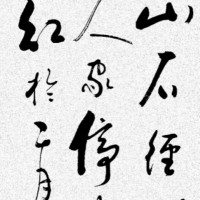 山石徑
人家停
紅於二月